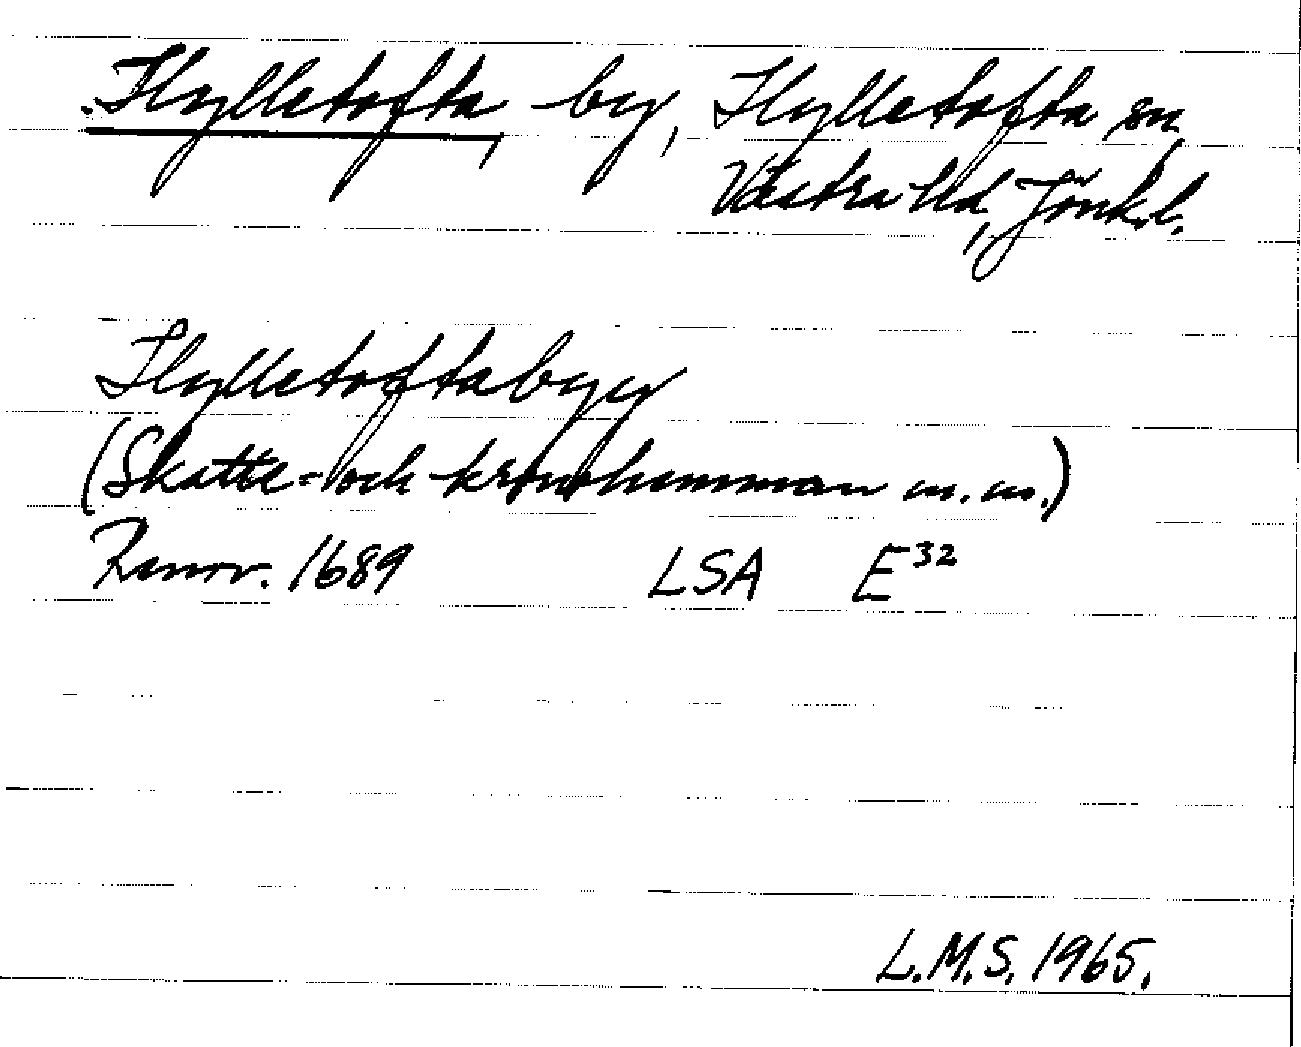 Hylletofta, by, Hylletofta sn
Västra hd, Jönk.l.
Hylletoftaby
(Skatte- och kronohemman m.m.)
Renov. 1689 LSA E³²
L.M.S. 1965.